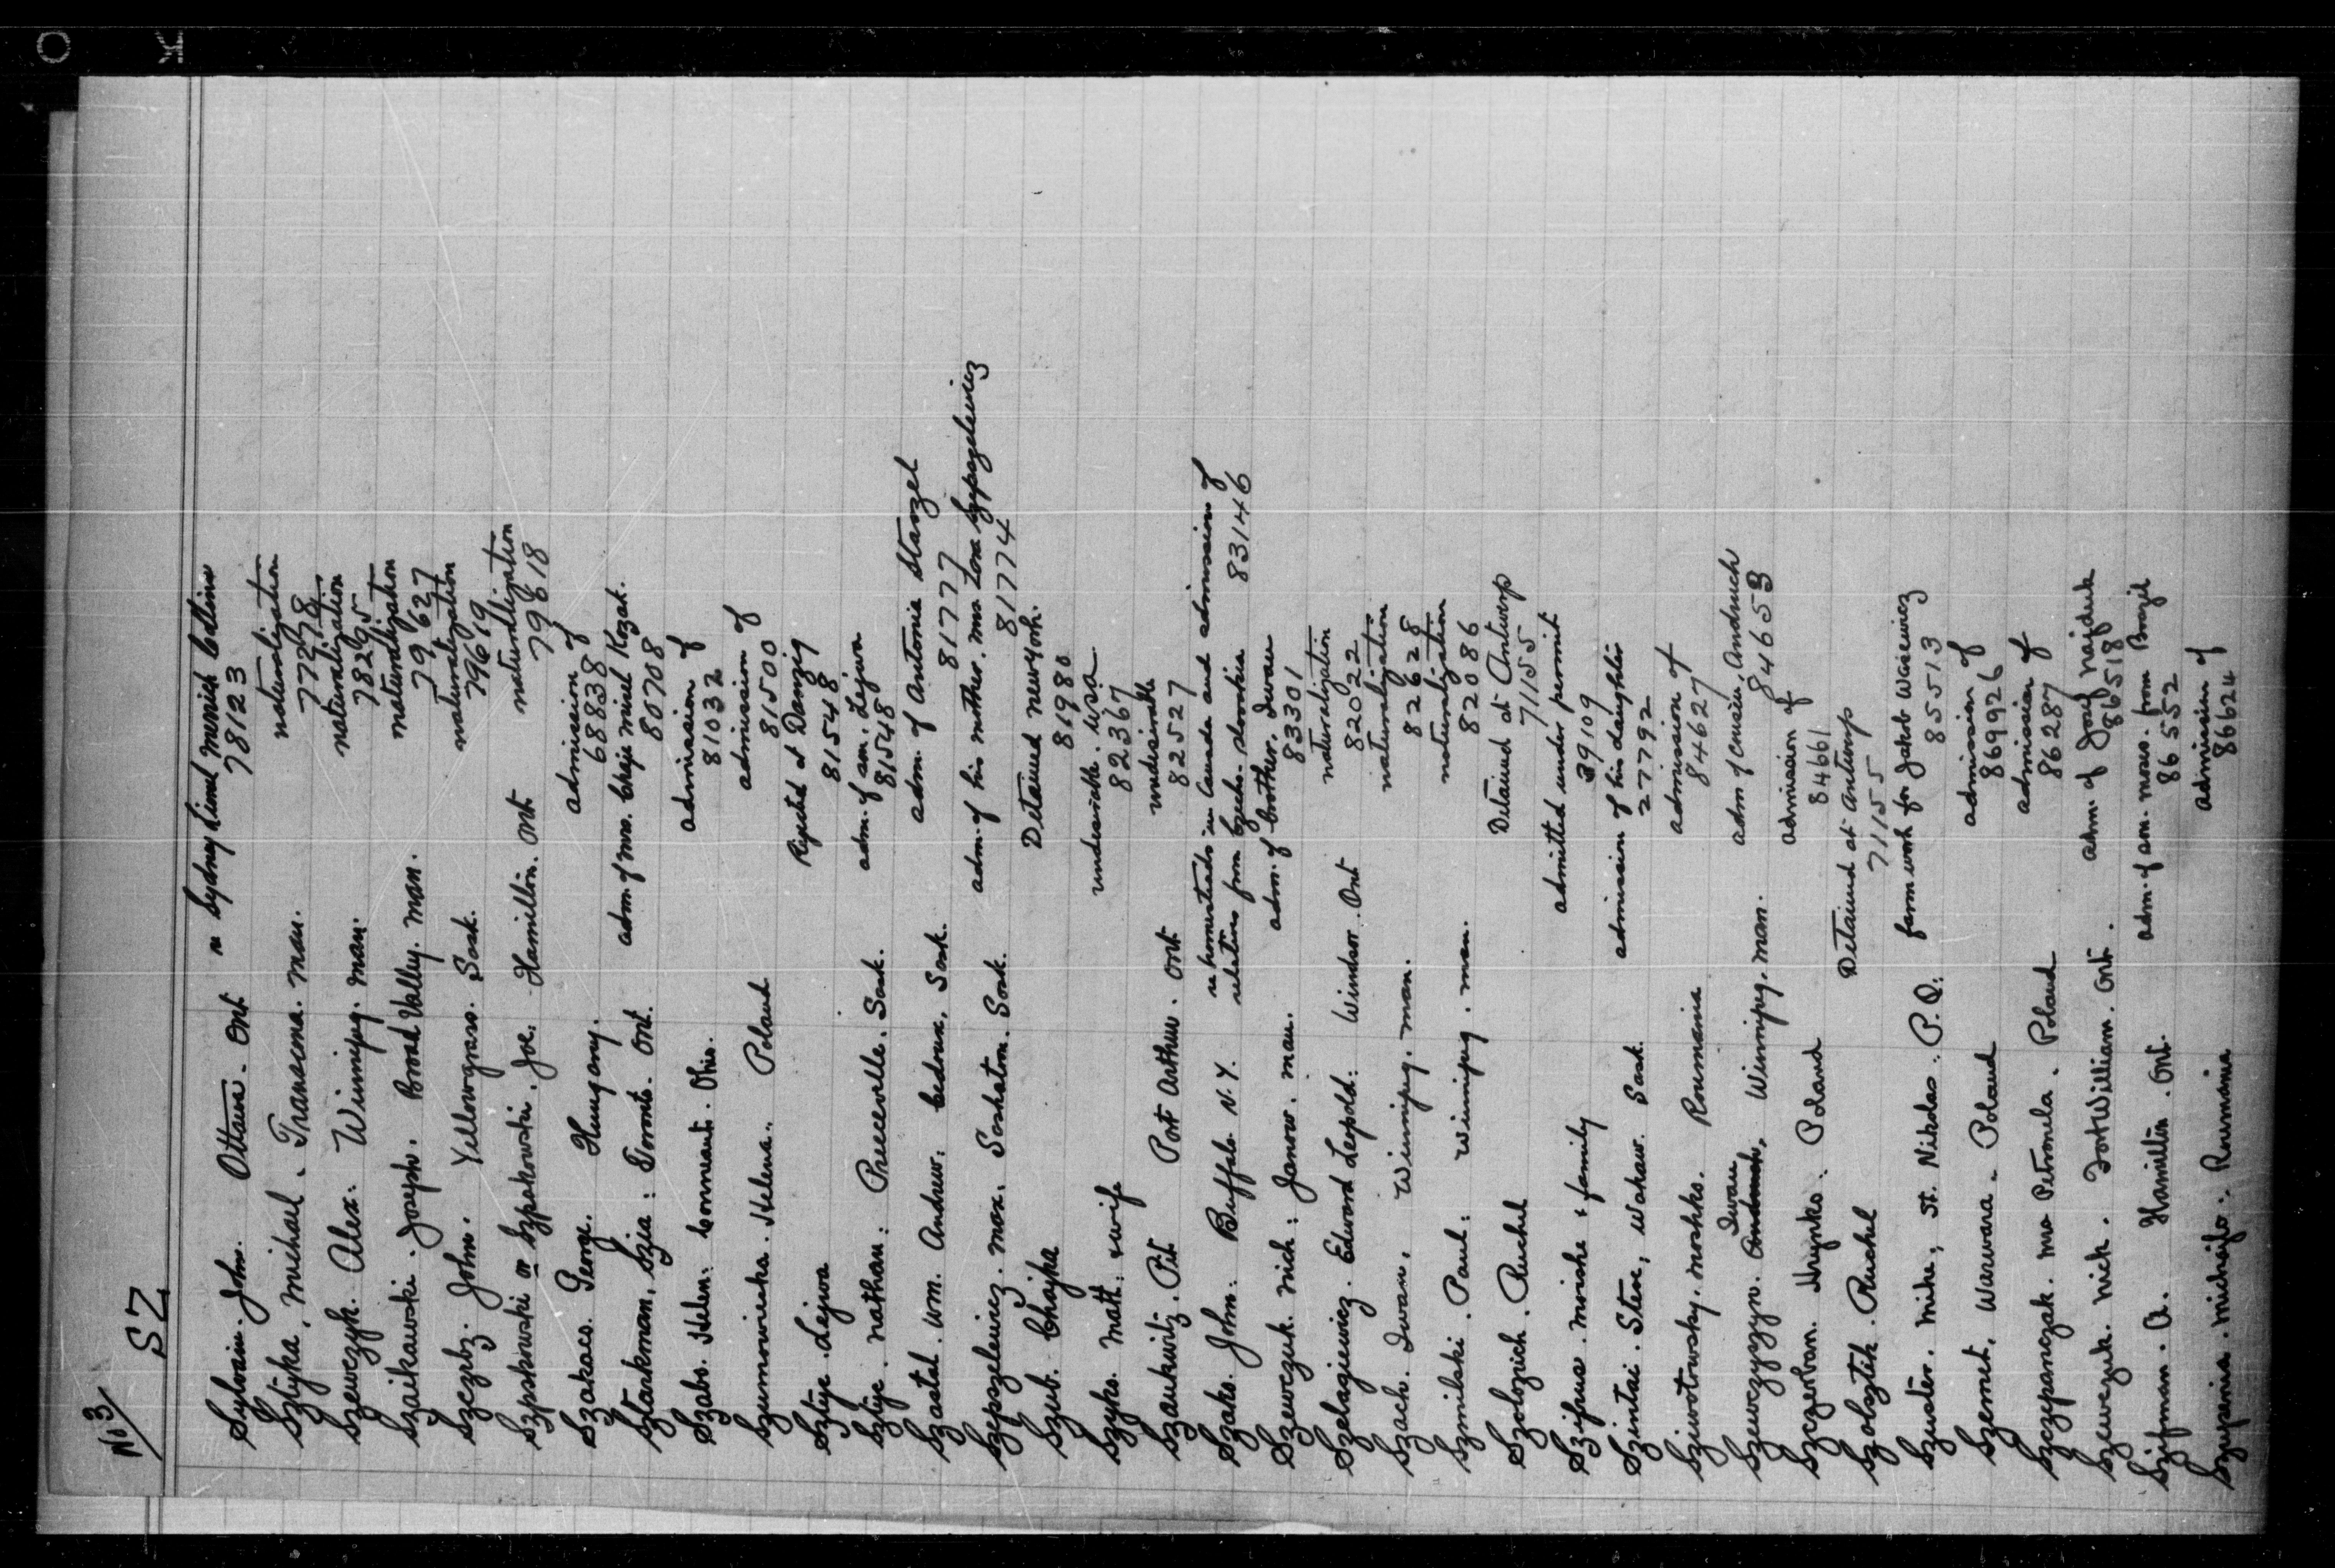 No 3
SZ
Sylvain. John. Ottawa. Ont re Sydney Lionel Morich Collins
78123
Sztyka, Michael. Transcona. Man. naturalization
77278
Szewczyk. Alex. Winnipeg. Man. naturalization
78295
Szaikawski. Joseph. Broad Valley. Man. naturalization
79627
Szczerbz. John. Yellowgrass. Sask. naturalization
79619
Szpakowski or Szpakowski. Joe. Hamilton. Ont naturalization
79618
Szakacs. George. Hungary. admission of
688838
Sztarkman, Szia: Toronto. Ont. adm. of Mrs. Chaje Mirel Kozak.
80708
Szabo. Helen. Conneaut. Ohio. admission of
81032
Szumowieska. Helena. Poland admission of
81500
Sztyje. Lejwa Rejected at Danzig
81548
Sztyje. Nathan: Preeceville. Sask. adm. of son. Lejwa
81548
Szastal. Wm. Andrew. Cedoux, Sask. adm. of Antonia Stanzel
81777
Szepszelewicz. Max. Saskatoon. Sask. adm. of his mother. Mrs Lora Szepszelewicz
81774
Szub. Chajka Detained New York.
81980
Szyko. Matt. & wife undesirable. USA
82367
Szaukwitz. Pit Port Arthur. Ont undesirable
82527
Szako. John. Buffalo N.Y. re homesteads in Canada and admission of
relatives from Czecho. Slovakia 83146
Szewczuk. Nick: Janow. Man. adm. of brother. Iwan
83301
Szelagiewicz. Edward Leopold: Windsor. Ont naturalization
82022
Szach. Iwan. Winnipeg. Man. naturalization
82628
Szmilski. Paul: Winnipeg. Man. naturalization
82086
Szolozich. Ruchel Detained at Antwerp
71155
Szifnus. Moishe & family admitted under permit
39109
Szintai. Steve, Wakaw. Sask. admission of his daughter
27792
Sziwotowsky. Moshko. Roumania admission of
84627
Iwan
Szewczyszyn. Andruch, Winnipeg. Man. adm of cousin, Andruch
84653
Szczerban. Hrynko. Poland admission of
84661
Szolsztik. Ruchel Detained at Antwerp
71155
Szuster. Mike, St. Nikolas. P.Q. farm work for Jakob Wasiewicz
85513
Szemet, Warwara. Poland admission of
869926
Szczypanczak. Mrs Petronela. Poland admission of
86287
Szewczuk. Nick. Fort William. Ont. adm. of Josef Najduk
86518
Szifman. A. Hamilton. Ont. adm. of son. Moses. from Brazil
86552
Szupenia. Michajlo: Roumania admission of
86624